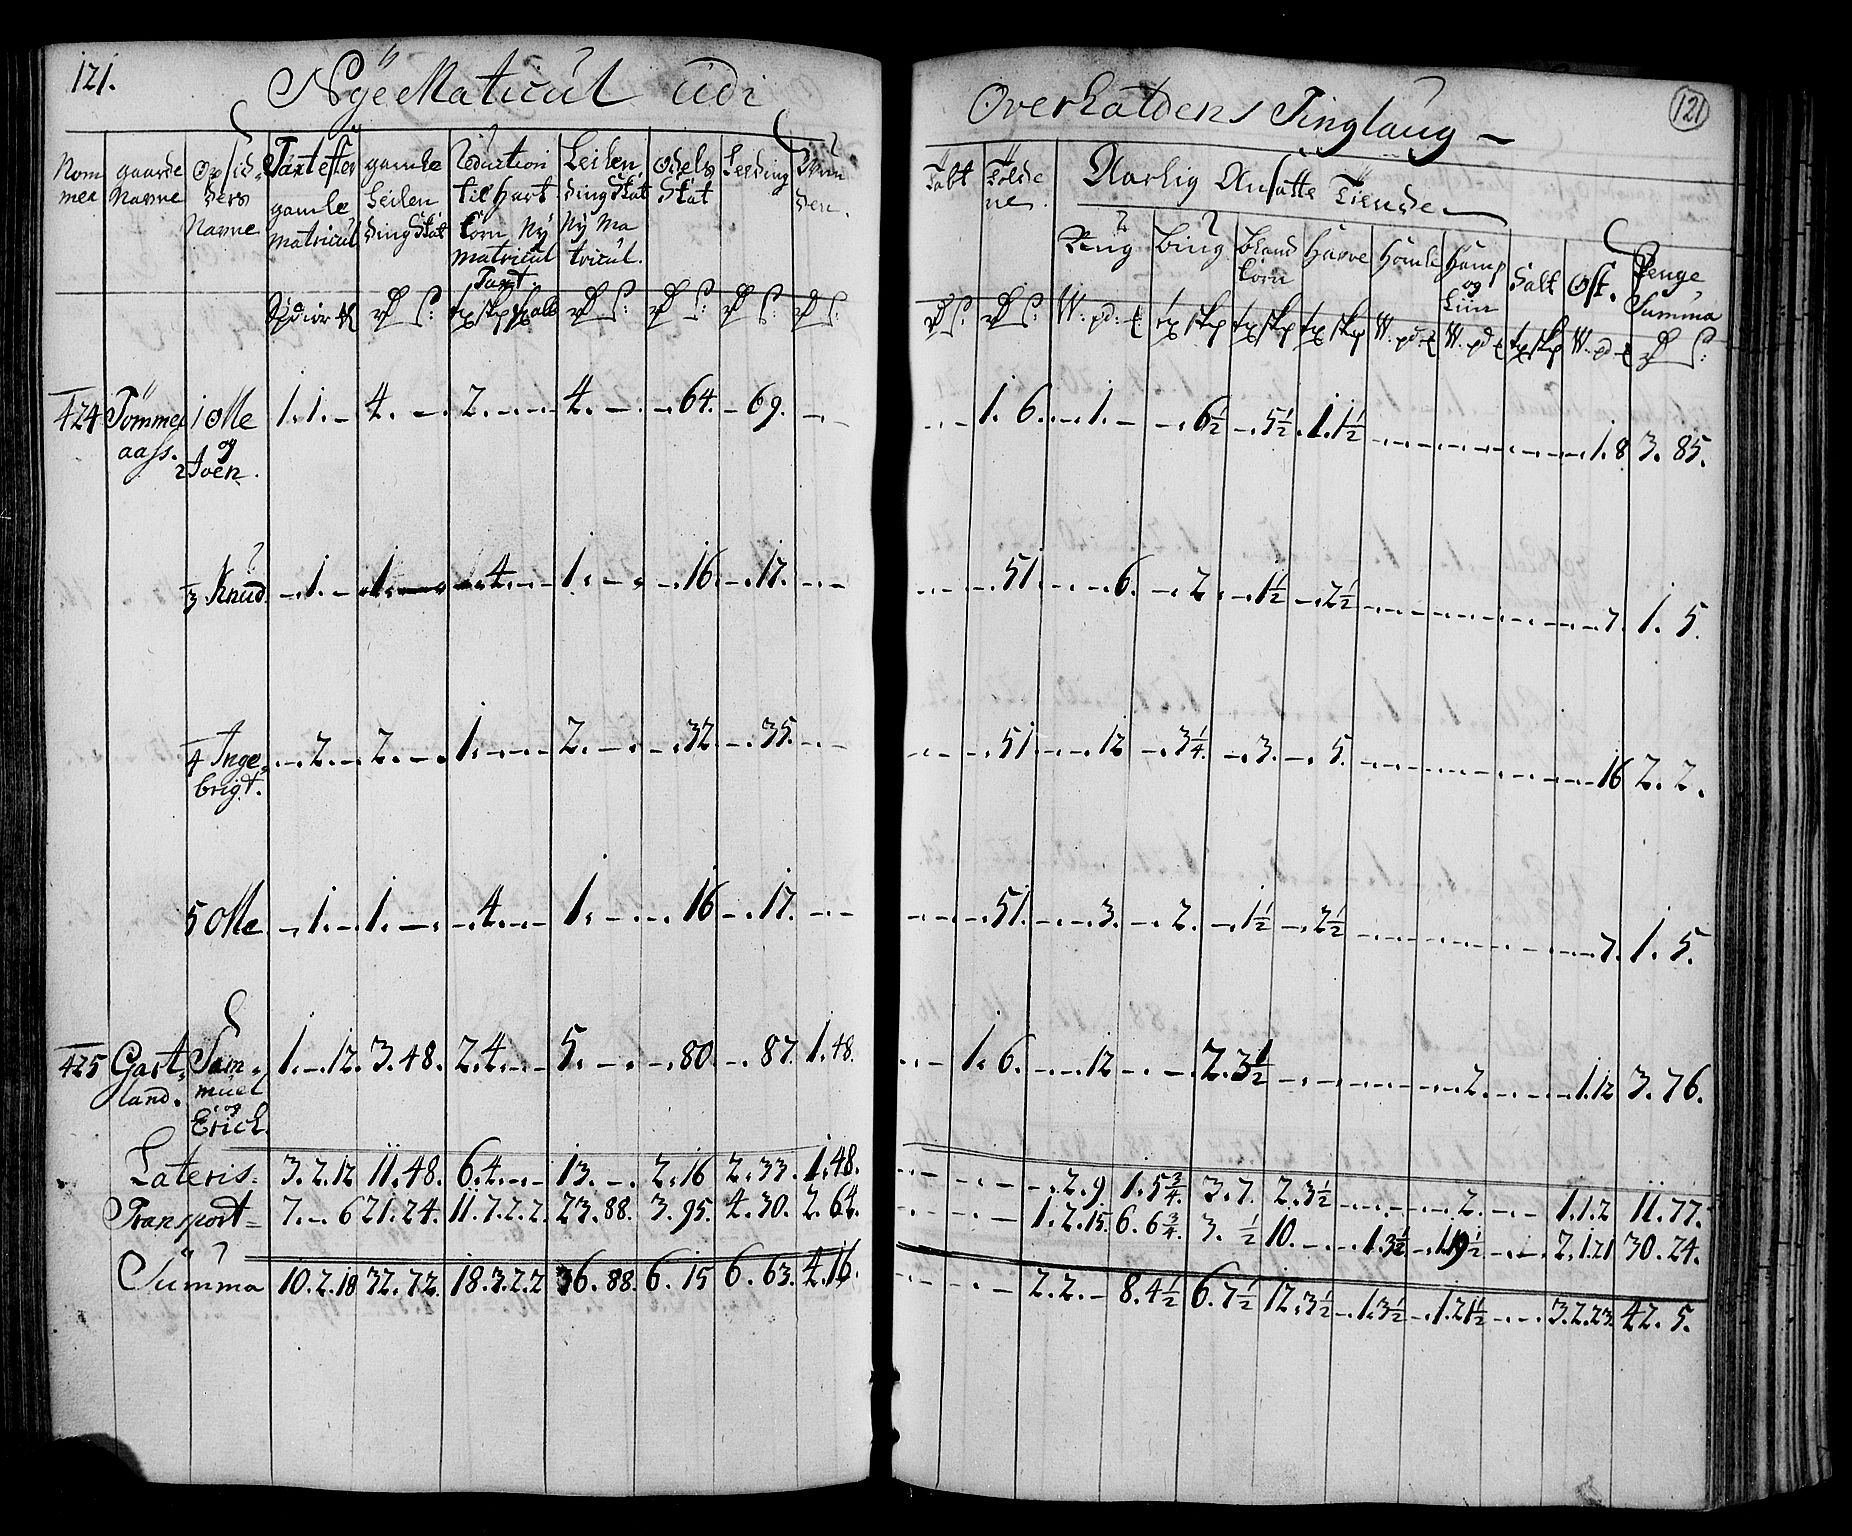 121.
Nÿe Maticul udi
Overhaldens Tinglaug
121
Nom mer
gaarde Nafne
Opsid. ders Nafne
Taxt efter gamle Matricul
gamle Leilen dingSkat
Reduction til Hart Corn Ny Matricul Taxt.
Leilen dingSkat Ny Ma tricul.
Odels Skat
Leeding
Aarlig Ansatte Tiende
Reug
Bÿug
Bland Corn
Havre
Homle
Hamp og Liin
Salt
Ost.
Penge Summa
424 Tømmer 1 Ole 1.1.- 4.-. 2.-.-. 4.-. -.64. -.69. -.- -.- 1. 6. -.1.- -.6½ -.5½ 1.1½ -.-.- -.-.- -.- -.1.8 3. 85.
aass. og
2 Iver.
3 Knud. -.1.- 1.- -.4.-.- 1.-. -.16. -.17. -.- -.- -.51. -.-.6. -.2. -.1½ -.2½ -.-.- -.-.- -.- -.-.7. 1. 5.
4 Inge= -.2.- 2.-. 1.-.-. 2.-. -.32. -.35. -.- -.- -.51 -.-.12 -.3¼. -.3. -.5. -.-.- -.-.- -.- -.-.16 2. 2.
brigt.
5 Ole -.1.- 1.-. -.4.-.- 1.-. -.16 -.17. -.- -.- -.51. -.-.3. -.2. -.1½ -.2½ -.-.- -.-.- -.- -.-.7. 1. 5.
425 Gart= Sam= 1.-.12. 3.48. 2.4.-.- 5.-. -.80. -.87. 1.48. -.- 1. 6. -.-.12 -.- 2.3½ -.- -.-.- -.-.2. -.- -.1.12 3.76.
land. muel
og
Erich.
Lateris. 3.2.12 11.48. 6.4.-.- 13.-. 2.16 2.33. 1.48. -.- -.- -.2.9 1.5¾. 3.7. 2.3½ -.-.- -.-.2. -.- 1.1.2 11.77.
Transport= 7.-.6 21.24. 11.7.2.2. 23.88. 3.95. 4.30. 2.64. -.- -.- 1.2.15. 6.6¾. 3. ½ 10.-. -.1.3½ -.1.19½ -.- 2.1.21 30.24.
Summa 10.2.18 32.72. 18.3.2.2 36.88. 6.15 6.63. 4.16. -.- -.- 2.2.- 8.4½ 6.7½ 12.3½ -.1.3½ -.1.21½ -.-. 3.2.23. 42. 5.